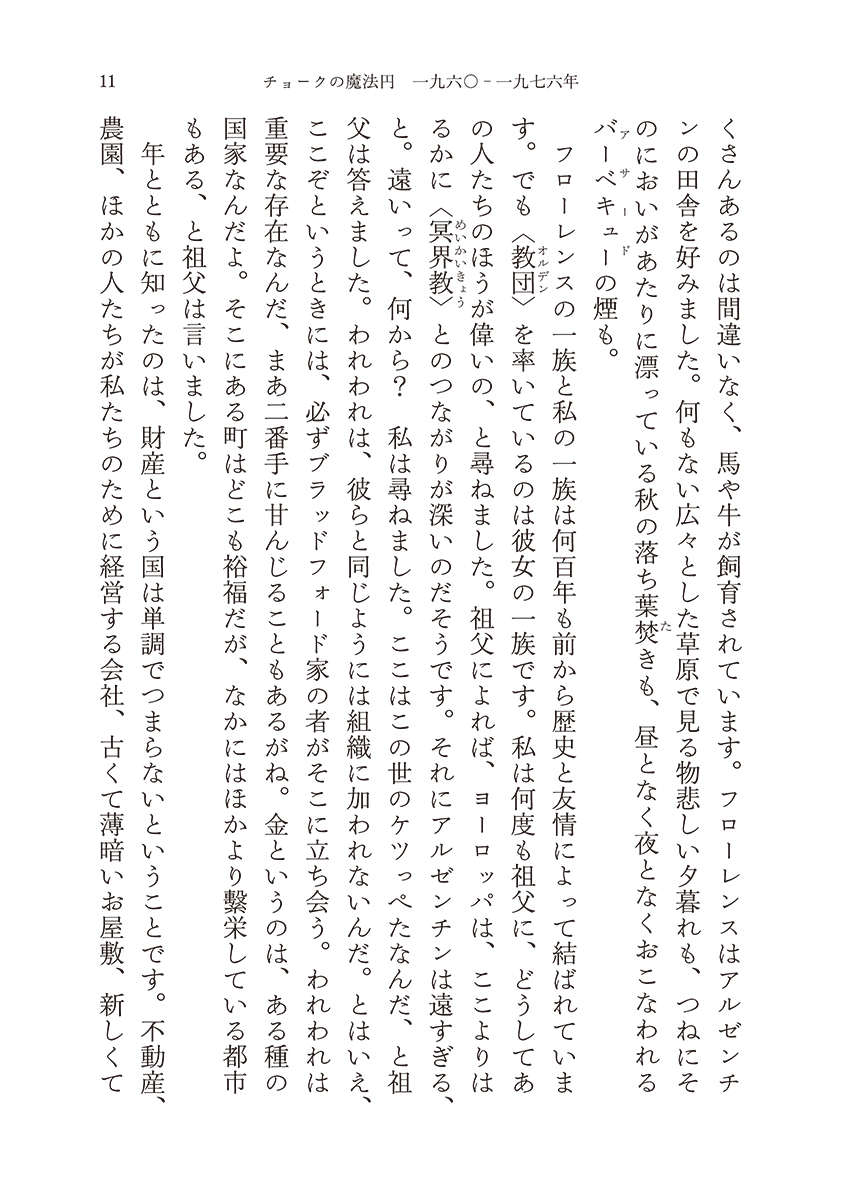 11
チョークの魔法円　一九六〇－一九七六年
くさんあるのは間違いなく、馬や牛が飼育されています。フローレンスはアルゼンチ
ンの田舎を好みました。何もない広々とした草原で見る物悲しい夕暮れも、つねにそ
のにおいがあたりに漂っている秋の落ち葉焚きも、昼となく夜となくおこなわれる
バーベキューの煙も。
フローレンスの一族と私の一族は何百年も前から歴史と友情によって結ばれていま
す。でも〈教団〉を率いているのは彼女の一族です。私は何度も祖父に、どうしてあ
の人たちのほうが偉いの、と尋ねました。祖父によれば、ヨーロッパは、ここよりは
るかに〈冥界教〉とのつながりが深いのだそうです。それにアルゼンチンは遠すぎる、
と。遠いって、何から？　私は尋ねました。ここはこの世のケツっぺたなんだ、と祖
父は答えました。われわれは、彼らと同じようには組織に加われないんだ。とはいえ、
ここぞというときには、必ずブラッドフォード家の者がそこに立ち会う。われわれは
重要な存在なんだ、まあ二番手に甘んじることもあるがね。金というのは、ある種の
国家なんだよ。そこにある町はどこも裕福だが、なかにはほかより繫栄している都市
もある、と祖父は言いました。
年とともに知ったのは、財産という国は単調でつまらないということです。不動産、
農園、ほかの人たちが私たちのために経営する会社、古くて薄暗いお屋敷、新しくて